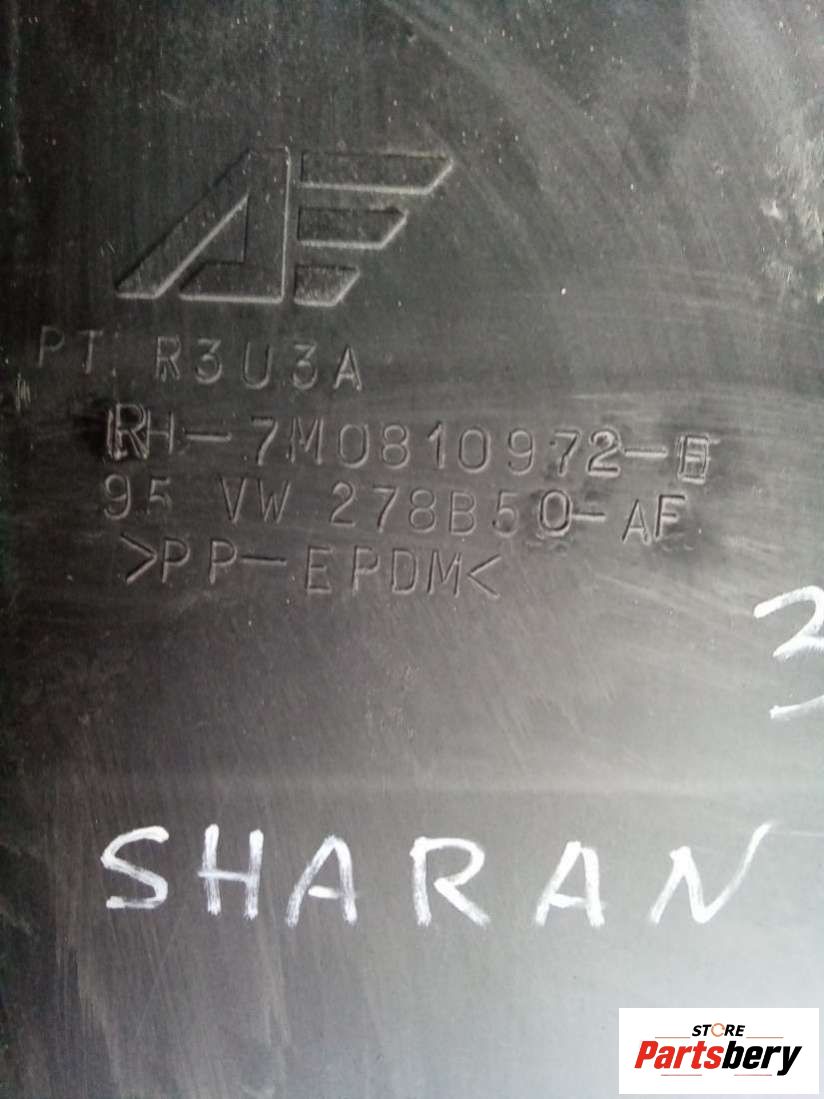 AF
PT R3U3A
RH-7M0810972-E
95 VW 278B50-AF
>PP-EPDM<
3
SHARAN
STORE
Partsbery